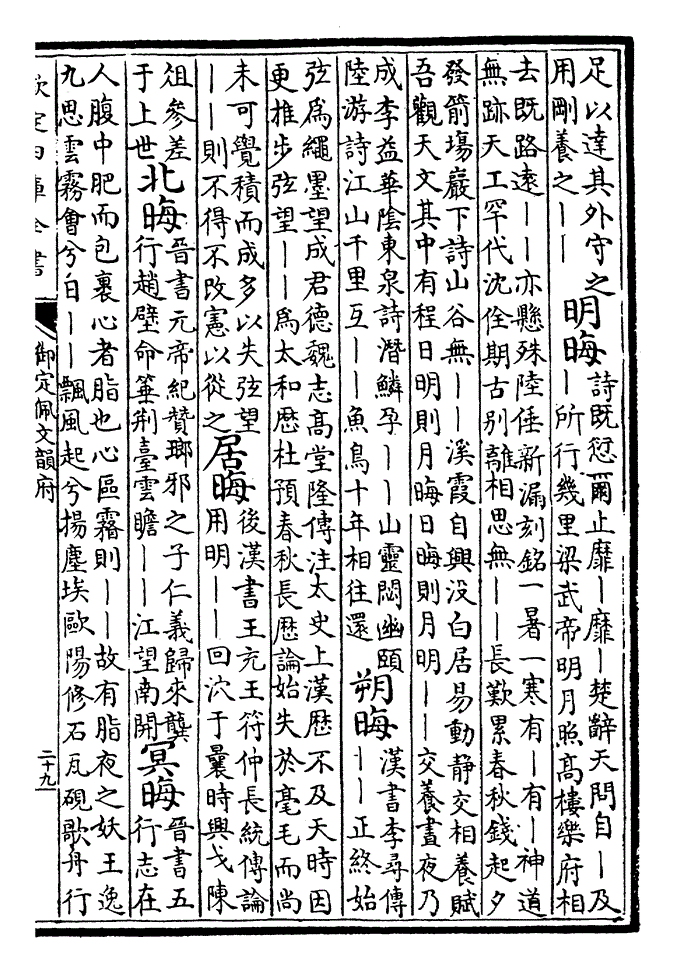 足以達其外守之
用剛養之丨丨
明晦
詩既愆爾止靡丨靡丨楚辭天問自丨及
丨所行幾里梁武帝明月照高樓樂府相
去既路遠丨丨亦懸殊陸倕新漏刻銘一暑一寒有丨有丨神道
無跡天工罕代沈佺期古别離相思無丨丨長歎累春秋錢起夕
發箭塲巖下詩山谷無丨丨溪霞自興没白居易動静交相養賦
吾觀天文其中有程日明則月晦日晦則月明丨丨交養晝夜乃
成李益華陰東泉詩潛鱗孕丨丨山靈閟幽賾
陸游詩江山千里互丨丨魚鳥十年相往還
朔晦
漢書李尋傳
丨丨正終始
弦為繩墨望成君德魏志髙堂隆傳注太史上漢歴不及天時因
更推步弦望丨丨為太和歴杜預春秋長歴論始失於毫毛而尚
未可覺積而成多以失弦望
丨丨則不得不改憲以從之
居晦
後漢書王充王符仲長統傳論
用明丨丨回泬于曩時興戈陳
俎參差
于上世
北晦
晉書元帝紀贊瑯邪之子仁義歸來龔
行趙璧命箠荆臺雲瞻丨丨江望南開
冥晦
晉書五
行志在
人腹中肥而包裹心者脂也心區霿則丨丨故有脂夜之妖王逸
九思雲霧會兮日丨丨飄風起兮揚塵埃歐陽修石瓦硯歌舟行
欽定四庫全書
御定佩文韻府
二十九